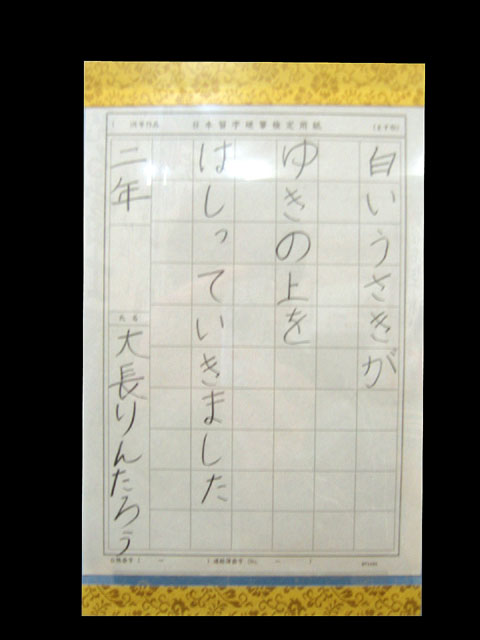 日本習字硬筆検定用紙
白いうさきが
ゆきの上を
はしっていきました
二年
氏名
大長りんたろう